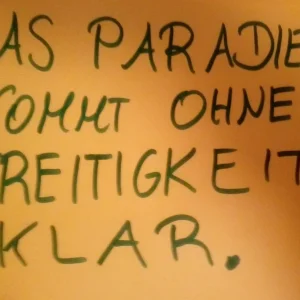 AS PARADIE
KOMMT OHNE
REITIGKEIT
KLAR.